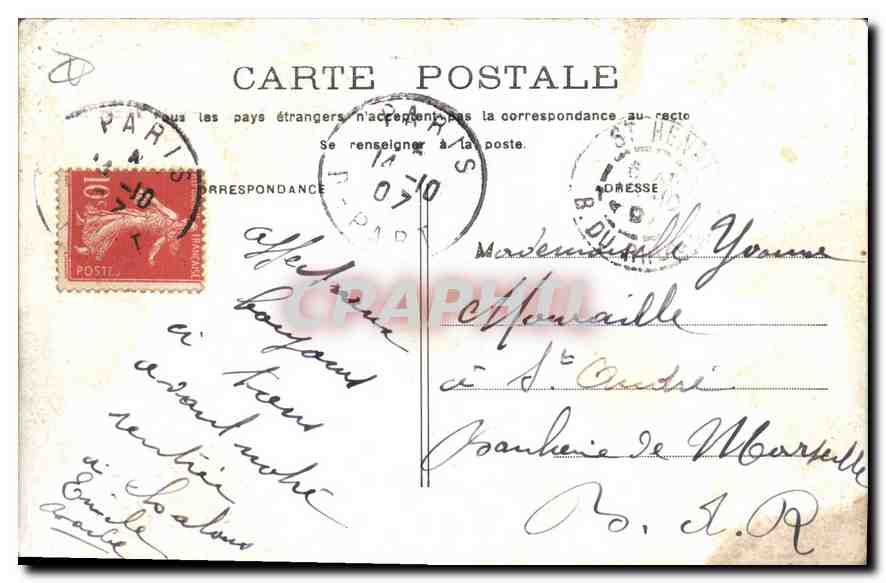 CARTE POSTALE
Tous les pays étrangers n'acceptent pas la correspondance au recto
Se renseigner à la poste.
CORRESPONDANCE
ADRESSE
PARIS
10
07
DÉPART
PARIS
14
10
07
DÉPART
ST HENRI
B. DU RH
10c
POSTES
FRANÇAISE
CPARAMA
affectueux
bonjours
à tous
avant notre
rentrée
à Salons
Emile
Mademoiselle Yvonne
Mouraille
à St. André
banlieue de Marseille
B. d. R